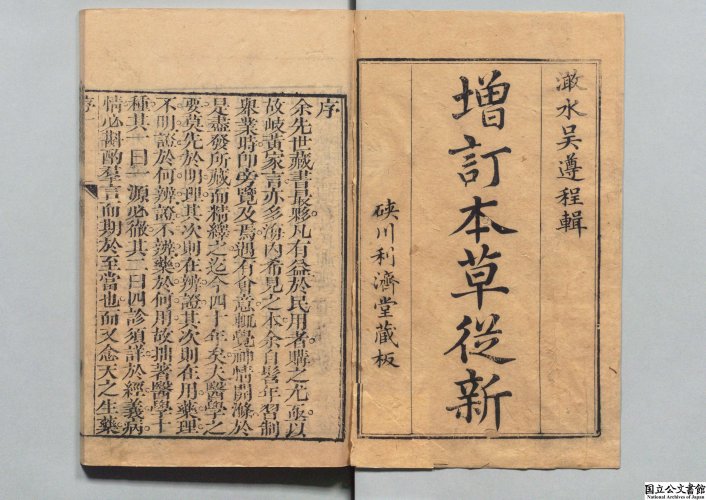 澉水吴遵程輯
增訂本草從新
硤川利濟堂藏板
序
余先世藏書最夥凡有益於民用者購之尤亟以
故岐黄家言亦多海内希見之本余自髫年習制
舉業時即旁覽及焉遇有會意輒覺神情開滌於
是盡發所藏而精繹之迄今四十年矣夫醫學之
要莫先於明理其次則在辨證其次則在用藥理
不明證於何辨證不辨藥於何用故拙著醫學十
種其一曰一源必徹其二曰四診須詳於經義病
情必斟酌羣言而期於至當也而又念天之生藥
序
国立公文書館
National Archives of Japan